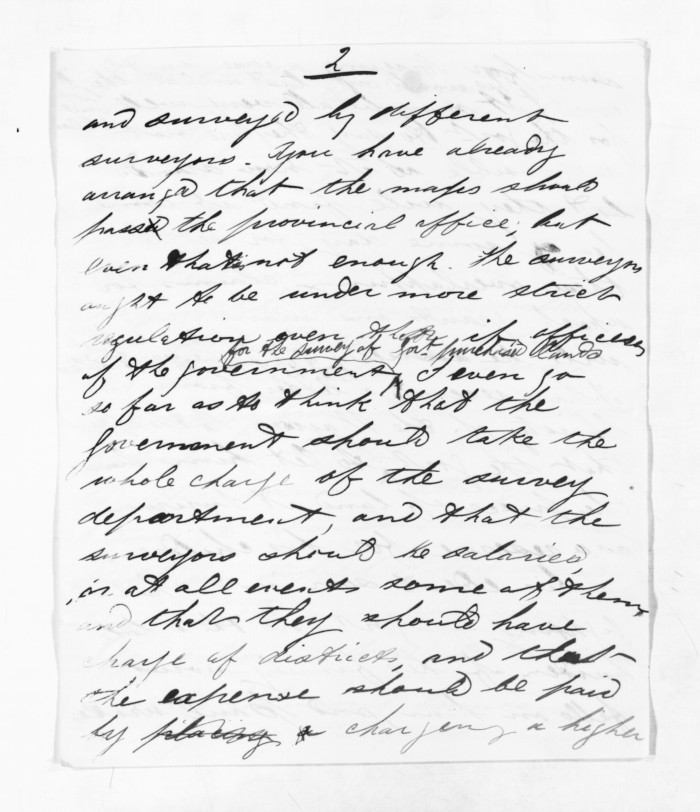 2
and surveyed by different
surveyors. You have already
arrangd that the maps should
pass the provincial office; but
even that is not enough. The surveyors
ought to be under more strict
regulation even, if officers
for the survey of Govt purchased lands
of the government, I even go
so far as to think that the
government should take the
whole charge of the survey
department, and that the
surveyors should be salaried,
or at all events some of them
and that they should have
charge of districts, and that
the expense should be paid
by placing a charging a higher